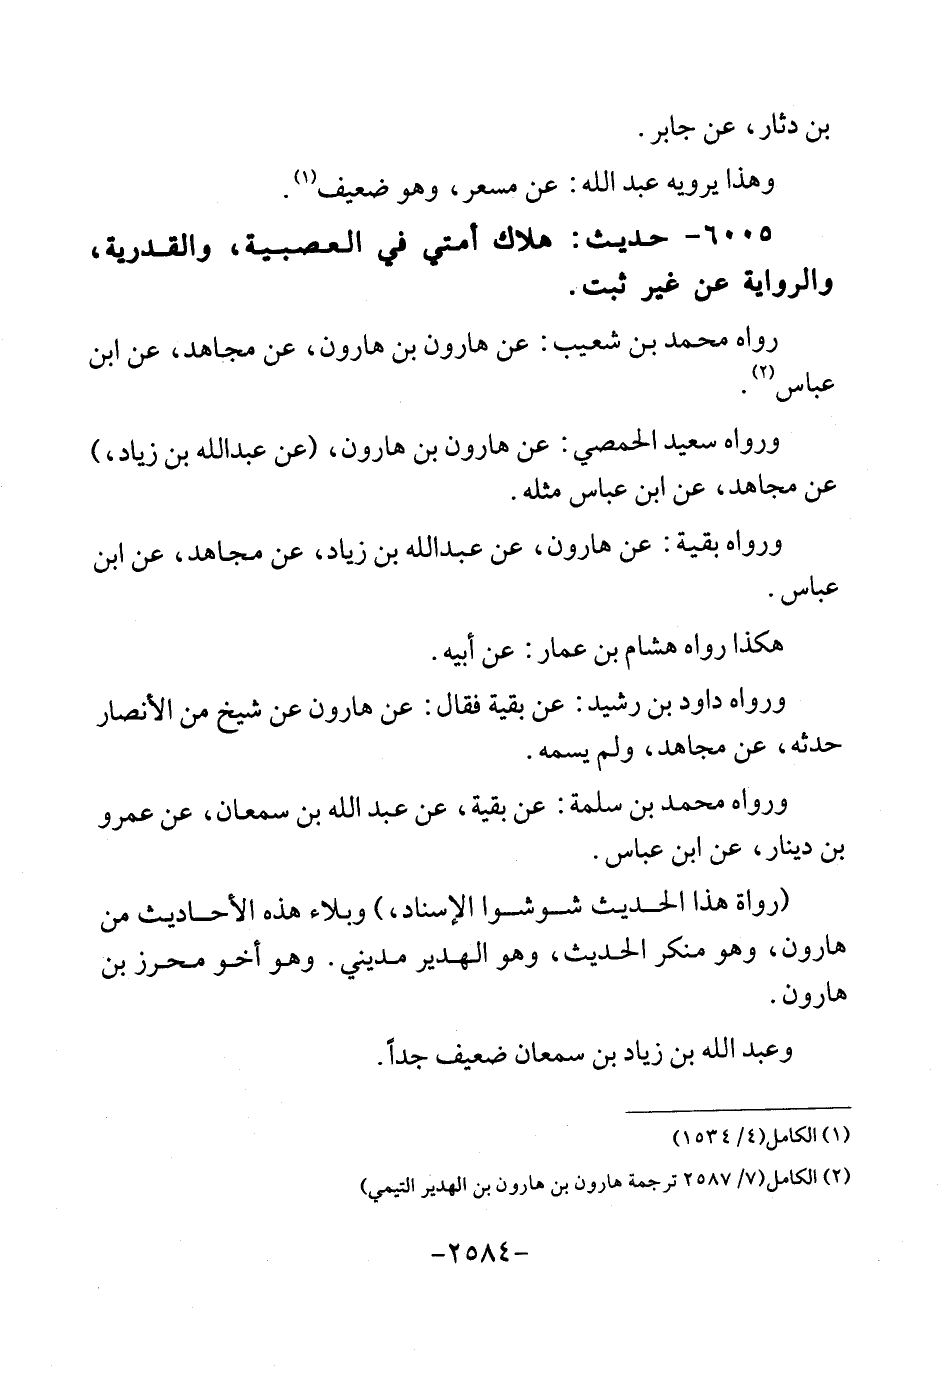 بن دثار، عن جابر.
وهذا يرويه عبد الله: عن مسعر، وهو ضعيف(١).
٦٠٠٥- حديث: هلاك أمتي في العصبية، والقدرية،
والرواية عن غير ثبت.
رواه محمد بن شعيب: عن هارون بن هارون، عن مجاهد، عن ابن
عباس(٢).
ورواه سعيد الحمصي: عن هارون بن هارون، (عن عبدالله بن زياد،)
عن مجاهد، عن ابن عباس مثله.
ورواه بقية: عن هارون، عن عبدالله بن زياد، عن مجاهد، عن ابن
عباس.
هكذا رواه هشام بن عمار: عن أبيه.
ورواه داود بن رشيد: عن بقية فقال: عن هارون عن شيخ من الأنصار
حدثه، عن مجاهد، ولم يسمه.
ورواه محمد بن سلمة: عن بقية، عن عبد الله بن سمعان، عن عمرو
بن دينار، عن ابن عباس.
(رواة هذا الحديث شوشوا الإسناد،) وبلاء هذه الأحاديث من
هارون، وهو منكر الحديث، وهو الهدير مديني. وهو أخو محرز بن
هارون.
وعبد الله بن زياد بن سمعان ضعيف جداً.
(١) الكامل(٤/ ١٥٣٤)
(٢) الكامل(٧/ ٢٥٨٧ ترجمة هارون بن هارون بن الهدير التيمي)
-٢٥٨٤-